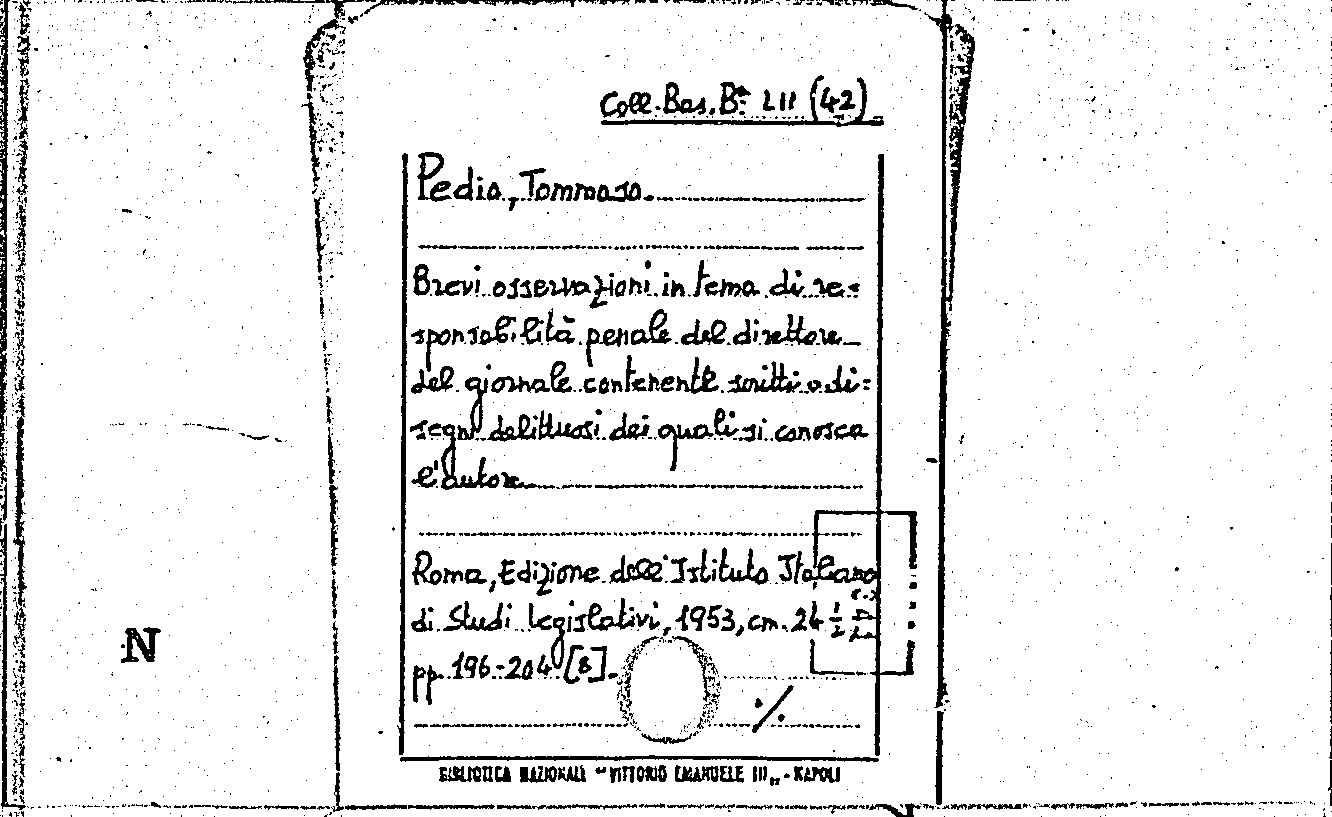 Coll. Bas. Bª LII (42)
Pedio, Tommaso.
Brevi osservazioni in tema di re=
sponsabilità penale del direttore
del giornale contenente scritti o di=
segni delittuosi dei quali si conosca
l'autore
Roma, Edizione dell'Istituto Italiano
di Studi legislativi, 1953, cm. 24 ½
pp. 196-204 [8].
./.
N
BIBLIOTECA NAZIONALE "VITTORIO EMANUELE III" - NAPOLI